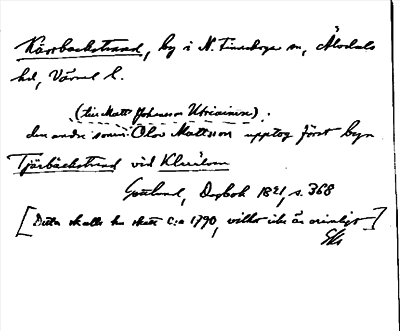 Kärrbackstrand, by i N. Finnskoga sn, Älvdals
hd, Värml. l.
(till Matt Johansson Utriainen).
den andre sonen Olov Mattsson upptog först byn
Tjärbäckstrand vid Klarälven
Gottlund, Dagbok 1821, s. 368
[Detta skulle ha skett c:a 1790, vilket icke är orimligt]